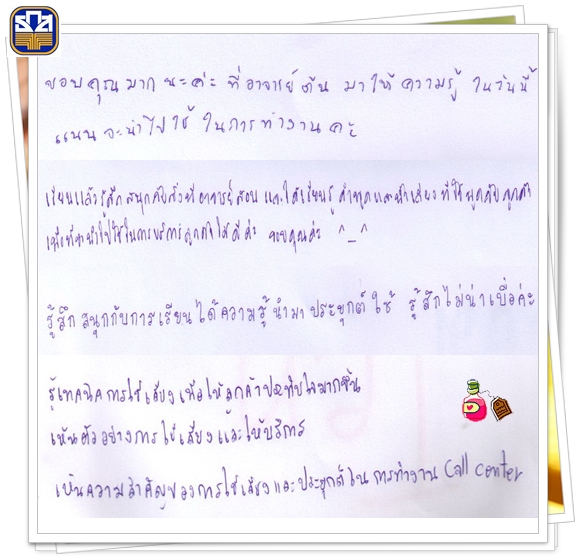 ธกส
ขอบคุณมาก นะค่ะ ที่อาจารย์ต้น มาให้ ความรู้ ในวันนี้
แนน จะนำไปใช้ ในการทำงาน ค่ะ
เรียนแล้วรู้สึก สนุกกับสิ่งที่อาจารย์สอน และได้เรียนรู้ คำพูดและน้ำเสียง ที่ใช้พูดกับลูกค้า
เพื่อที่จะนำไปใช้ในการบริการลูกค้าได้ดีค่ะ ขอบคุณค่ะ ^_^
รู้สึก สนุกกับการเรียน ได้ความรู้ นำมาประยุกต์ ใช้ รู้สึกไม่น่าเบื่อค่ะ
รู้เทคนิค การใช้เสียง เพื่อให้ลูกค้าประทับใจมากขึ้น
เห็นตัวอย่างการใช้เสียง และให้บริการ
เห็นความสำคัญของการใช้เสียง และประยุกต์ใน การทำงาน Call center